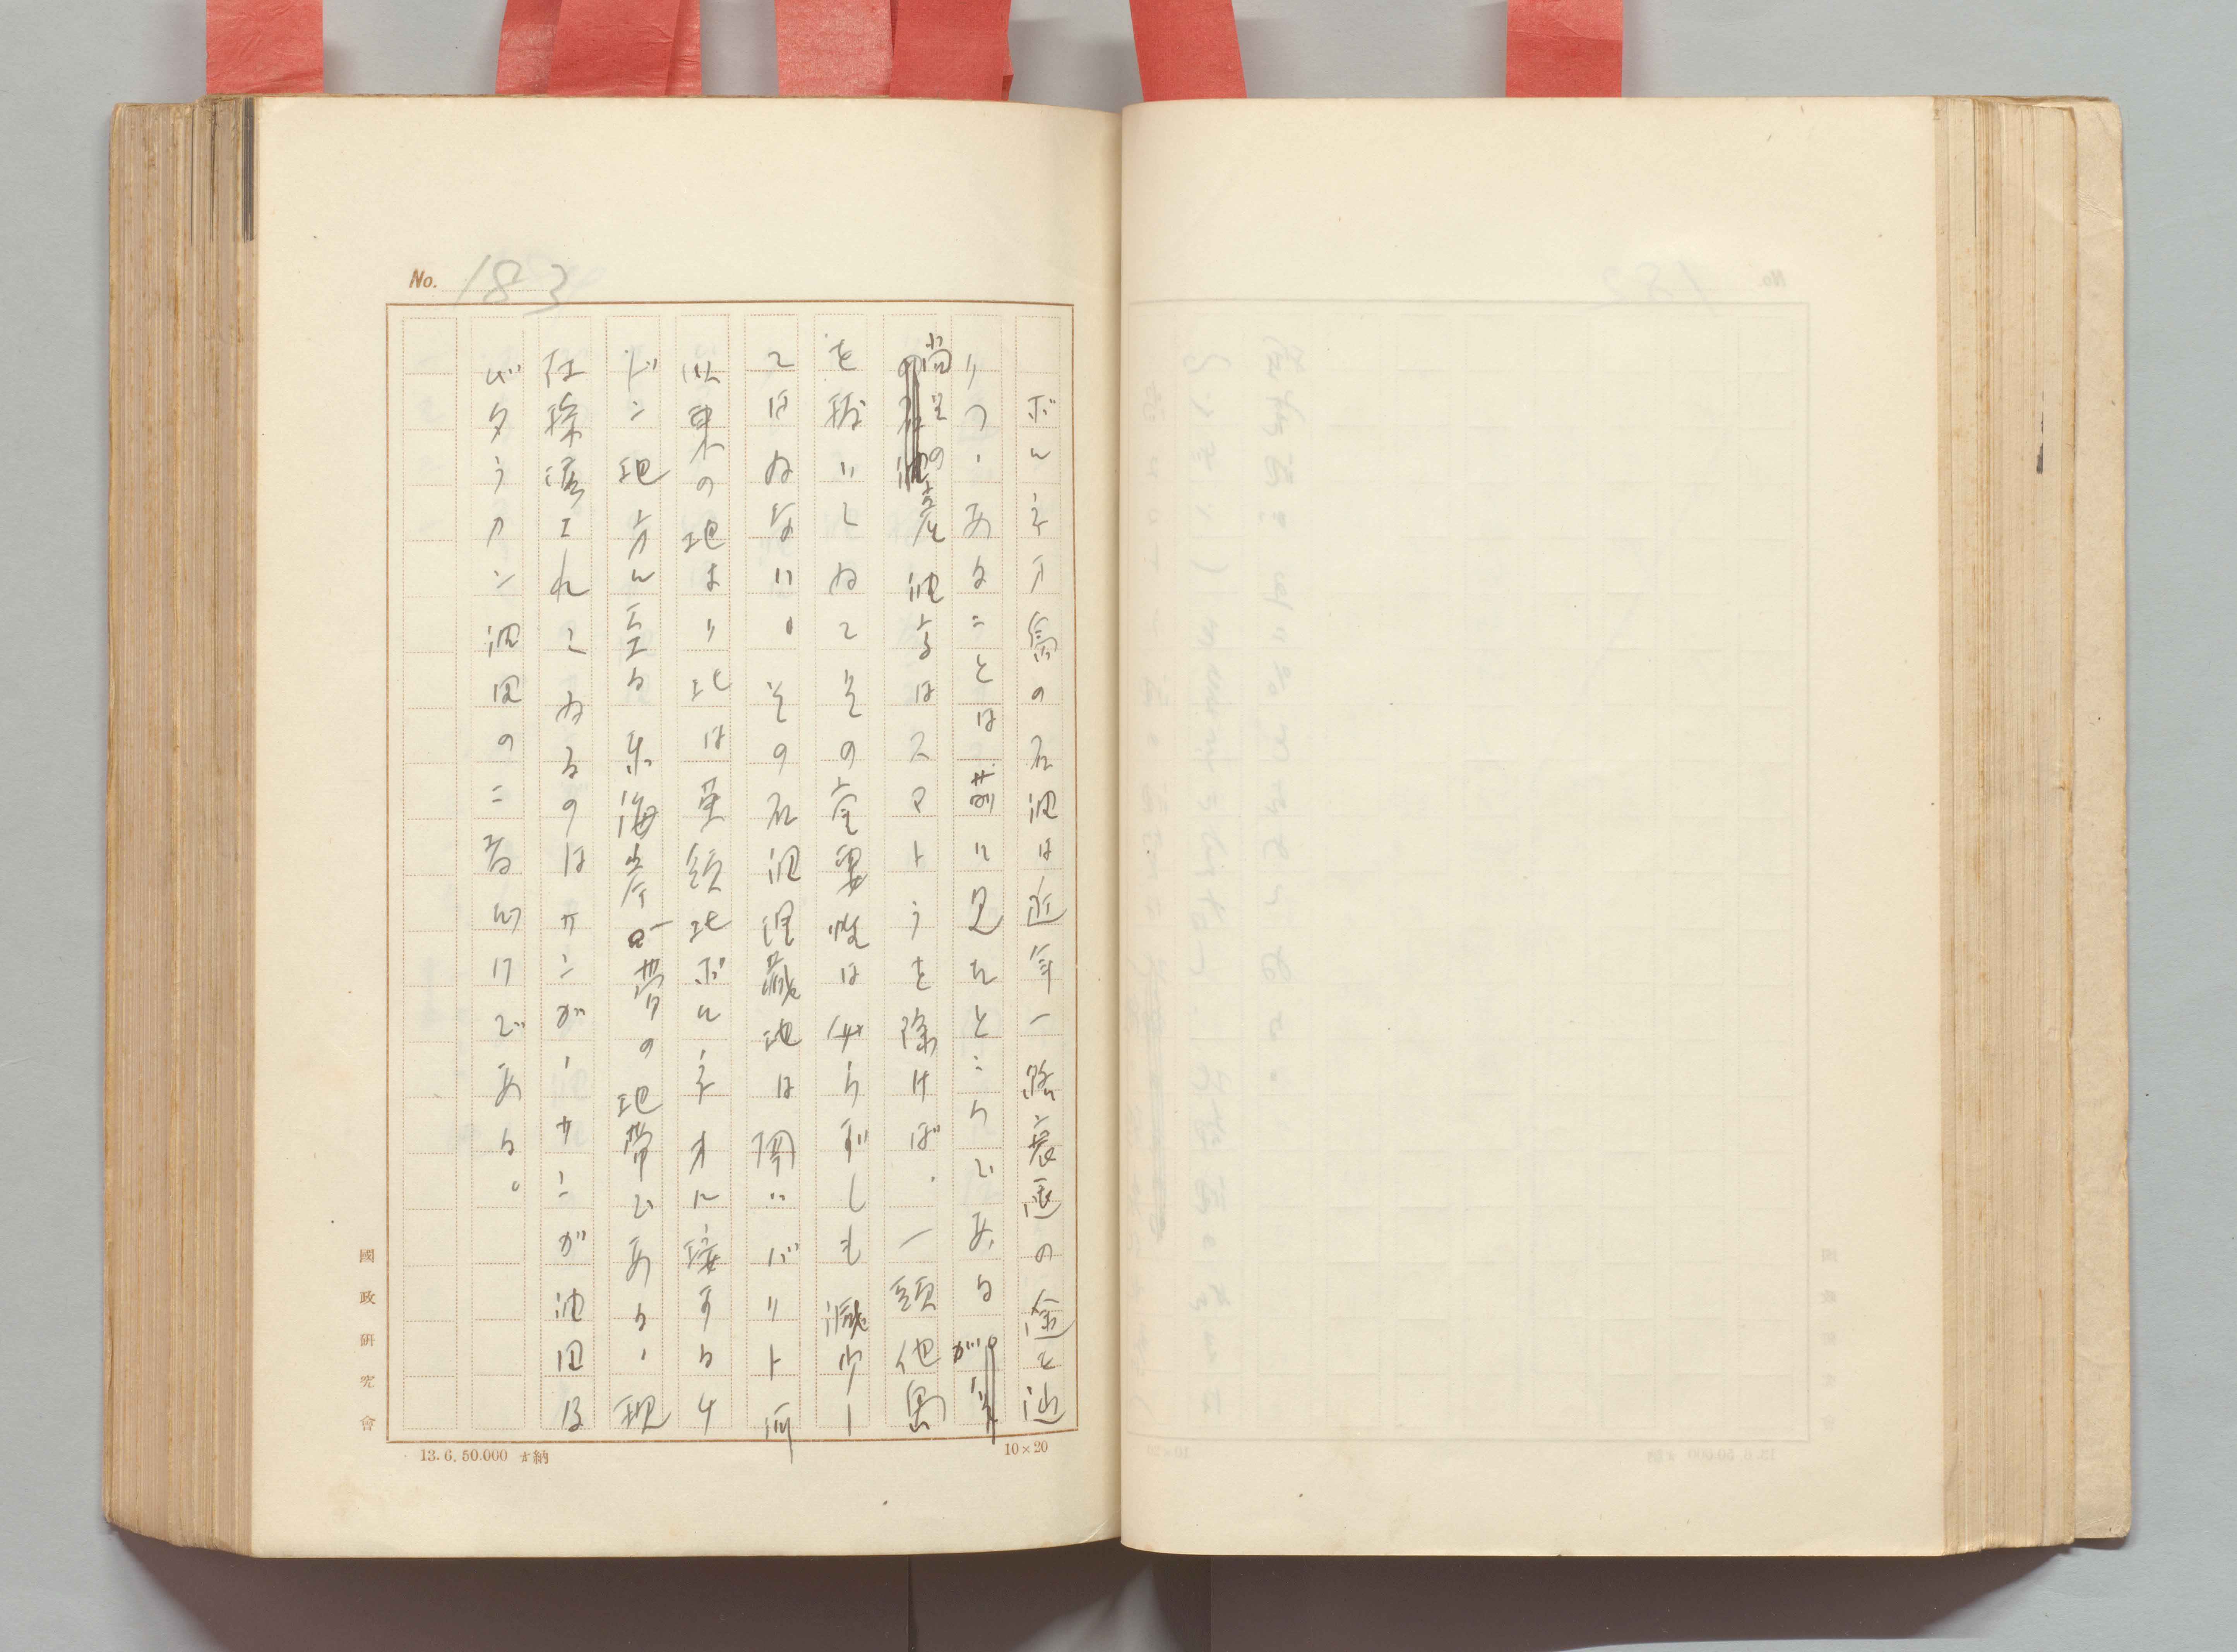 No. 183
ボルネオ島の石油は近年一路衰退の途を辿
りつゝあることは前に見たところであるが
尚 の産油高はスマトラを除けば、一頭他島
を抜いてゐてその重要性は必らずしも減少し
てはゐない。その石油埋蔵地は バリト河
以東の地より北は英領北ボルネオに接するサ
ドン地方に至る東海岸一帯の地帯である、現
在採 されてゐるのはサンガ、サンガ油田及
びタラカン油田の二者 けである。
國政研究會
13.6.50.000 納
10×20